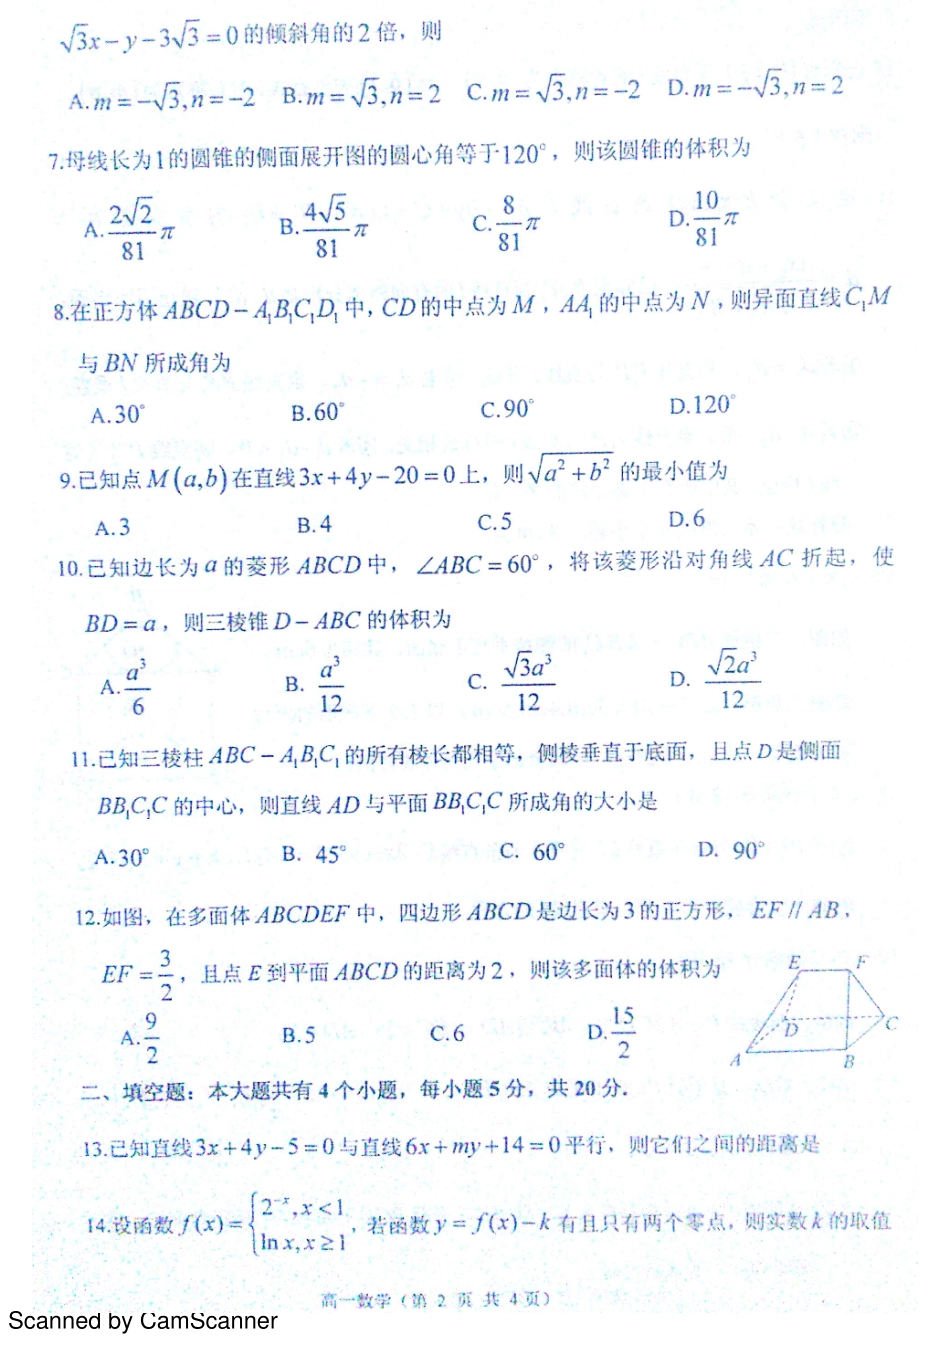 √3x－y－3√3＝0的倾斜角的2倍，则
A.m＝－√3,n＝－2 B.m＝√3,n＝2 C.m＝√3,n＝－2 D.m＝－√3,n＝2
7.母线长为1的圆锥的侧面展开图的圆心角等于120°，则该圆锥的体积为
A.2√2/81 π B.4√5/81 π C.8/81 π D.10/81 π
8.在正方体ABCD－A₁B₁C₁D₁中，CD的中点为M，AA₁的中点为N，则异面直线C₁M
与BN所成角为
A.30° B.60° C.90° D.120°
9.已知点M(a,b)在直线3x+4y－20=0上，则√(a²+b²)的最小值为
A.3 B.4 C.5 D.6
10.已知边长为a的菱形ABCD中，∠ABC=60°，将该菱形沿对角线AC折起，使
BD=a，则三棱锥D－ABC的体积为
A.a³/6 B.a³/12 C.√3a³/12 D.√2a³/12
11.已知三棱柱ABC－A₁B₁C₁的所有棱长都相等，侧棱垂直于底面，且点D是侧面
BB₁C₁C的中心，则直线AD与平面BB₁C₁C所成角的大小是
A.30° B. 45° C. 60° D. 90°
12.如图，在多面体ABCDEF中，四边形ABCD是边长为3的正方形，EF//AB，
EF=3/2，且点E到平面ABCD的距离为2，则该多面体的体积为
A.9/2 B.5 C.6 D.15/2
E F
D C
A B
二、填空题：本大题共有4个小题，每小题5分，共20分.
13.已知直线3x+4y－5=0与直线6x+my+14=0平行，则它们之间的距离是
14.设函数f(x)={2⁻ˣ,x<1
ln x,x≥1，若函数y=f(x)－k有且只有两个零点，则实数k的取值
高一数学（第 2 页 共 4 页）
Scanned by CamScanner